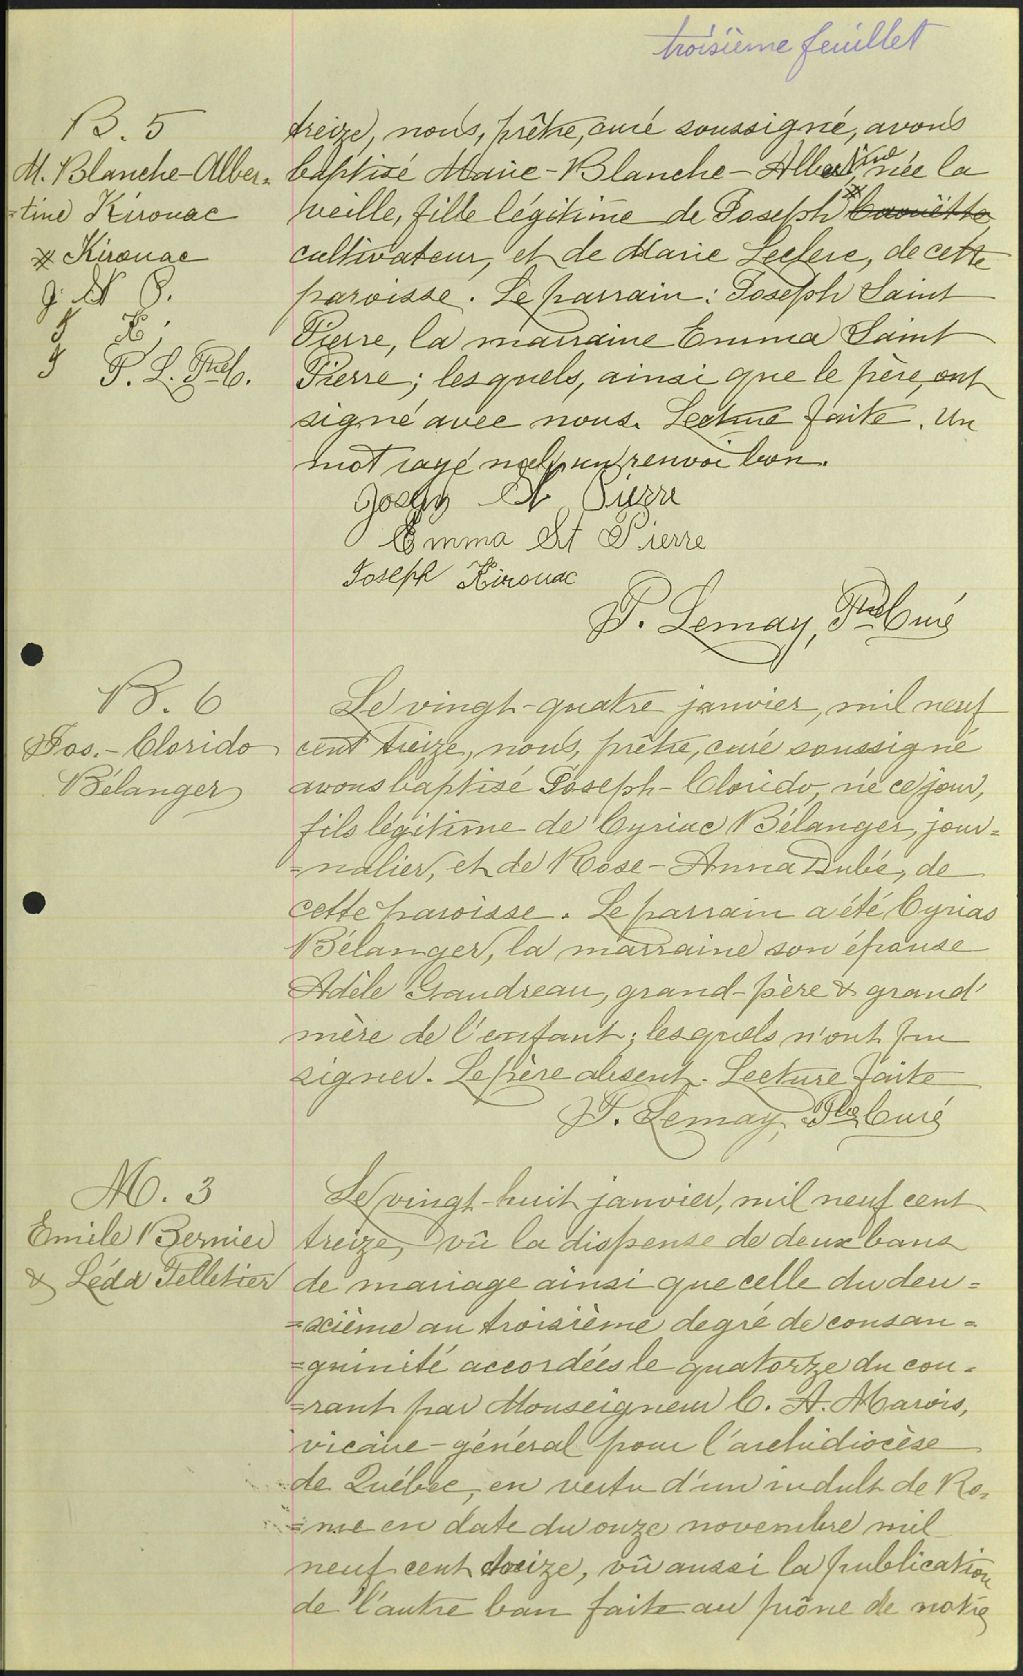 troisième feuillet
B. 5
M. Blanche-Alber-
=tine Kirouac
* Kirouac
J. St P.
J K.
J P. L. Ptre C.
treize, nous, prêtre, curé soussigné, avons
baptisé Marie-Blanche-Albertine, née la
veille, fille légitime de Joseph * Caouëtte,
cultivateur, et de Marie Leclerc, de cette
paroisse. Le parrain: Joseph Saint
Pierre, la marraine Emma Saint
Pierre; lesquels, ainsi que le père, ont
signé avec nous. Lecture faite. Un
mot rayé nul, un renvoi bon.
Joseph St Pierre
Emma St Pierre
Joseph Kirouac
P. Lemay, Ptre Curé
B. 6
Jos.-Clorido
Bélanger
Le vingt-quatre janvier, mil neuf
cent treize, nous, prêtre, curé soussigné
avons baptisé Joseph-Clorido, né ce jour,
fils légitime de Cyriac Bélanger, jour=
=nalier, et de Rose-Anna Dubé, de
cette paroisse. Le parrain a été Cyrias
Bélanger, la marraine son épouse
Adèle Gaudreau, grand-père & grand'
mère de l'enfant; lesquels n'ont pu
signer. Le père absent. Lecture faite
P. Lemay, Ptre Curé
M. 3
Emile Bernier
& Léda Pelletier
Le vingt-huit janvier, mil neuf cent
treize, vû la dispense de deux bans
de mariage ainsi que celle du deu=
=xième au troisième degré de consan=
=guinité accordées le quatorze du cou=
=rant par Monseigneur C. A. Marois,
vicaire-général pour l'archidiocèse
de Québec, en vertu d'un indult de Ro=
=me en date du onze novembre mil
neuf cent treize, vû aussi la publication
de l'autre ban faite au prône de notre